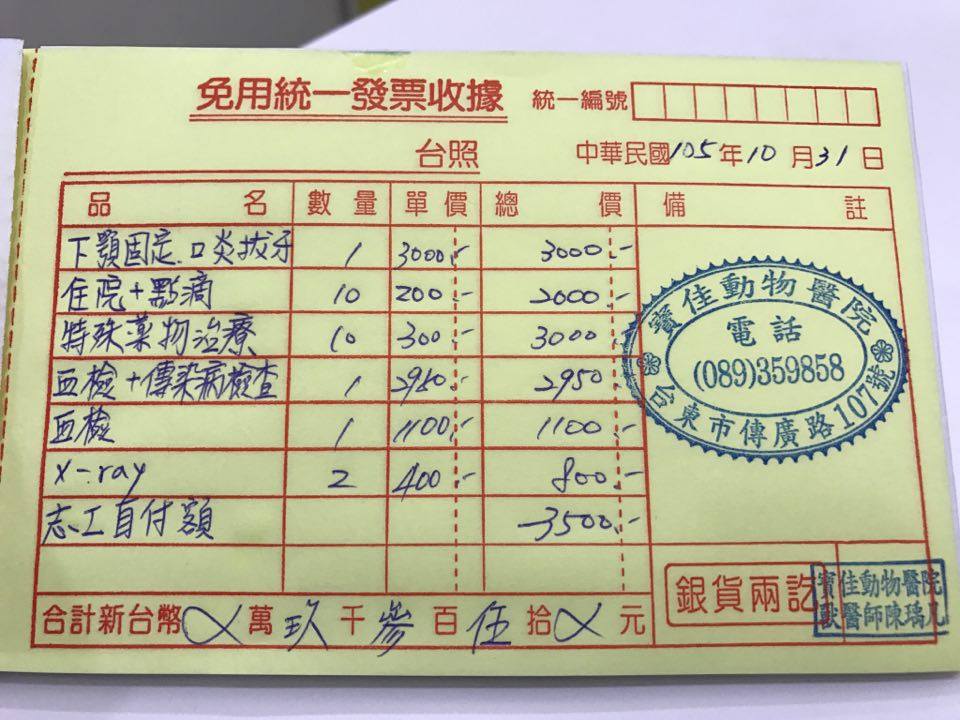 免用統一發票收據 統一編號
台照 中華民國105年10月31日
品名 數量 單價 總價 備註
下顎固定.口炎拔牙 1 3000.- 3000.-
住院+點滴 10 200.- 2000.-
特殊藥物治療 10 300.- 3000.-
血檢+傳染病檢查 1 2950.- 2950.-
血檢 1 1100.- 1100.-
X-ray 2 400.- 800.-
志工自付額 -3500.-
寶佳動物醫院
電話
(089)359858
台東市傳廣路107號
合計新台幣 萬玖千參百伍拾 元
銀貨兩訖
寶佳動物醫院
獸醫師陳瑀